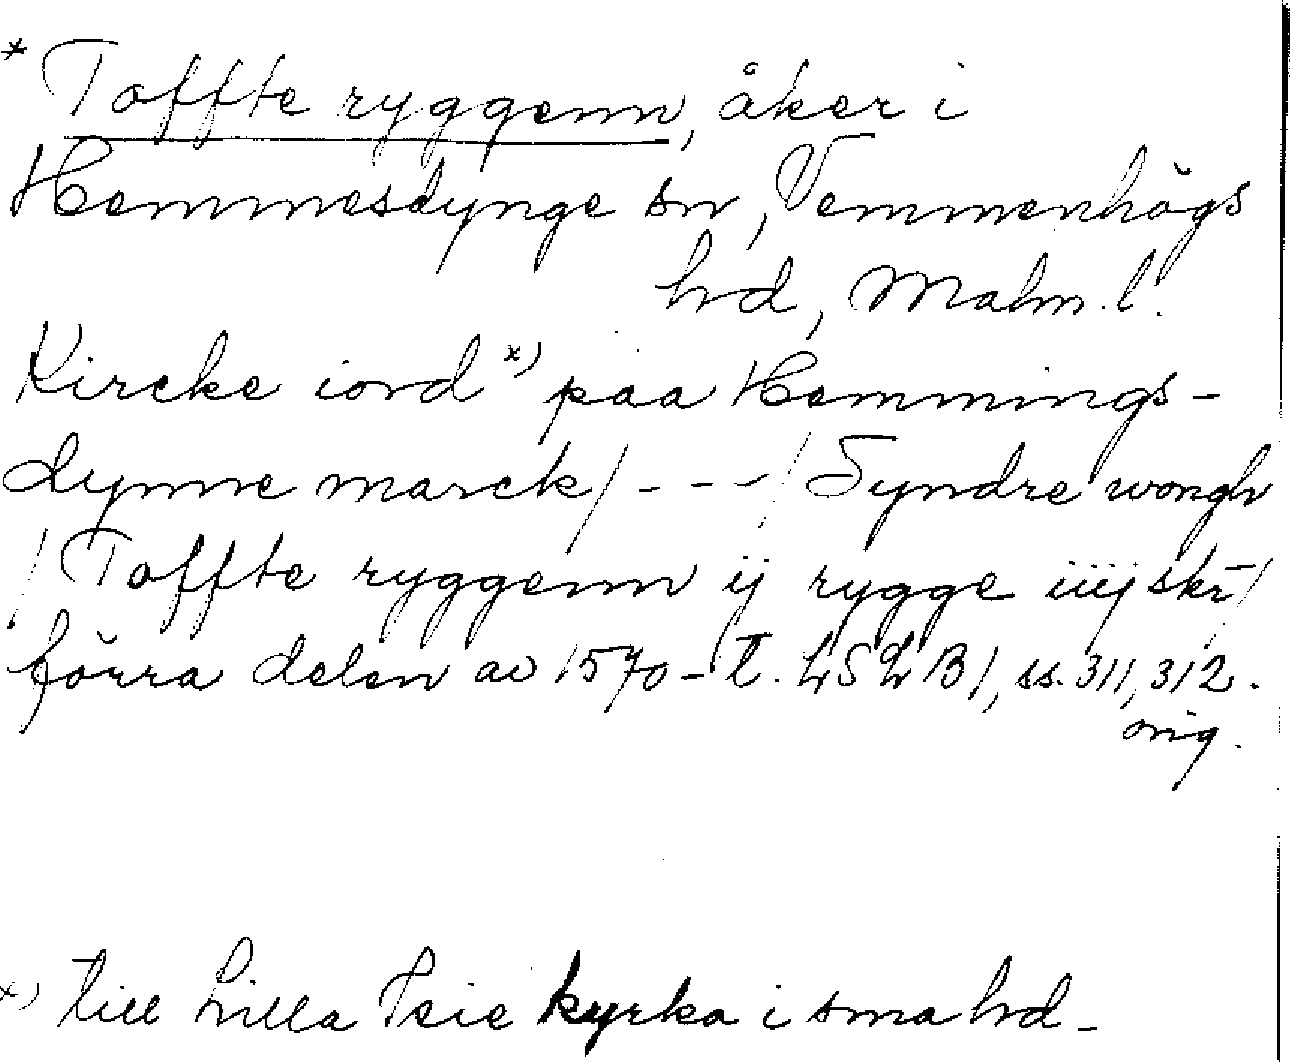 * Toffte ryggenn, åker i
Hemmesdynge sn, Vemmenhögs
hd, Malm. l.
Kircke iord x) paa Hemmings-
dynne marck / - - - / Syndre wongh
/ Toffte ryggenn ij rygge iiij skr /
förra delen av 1570-t. LSLB1, ss. 311, 312.
orig.
x) till Lilla Isie kyrka i sma hd -